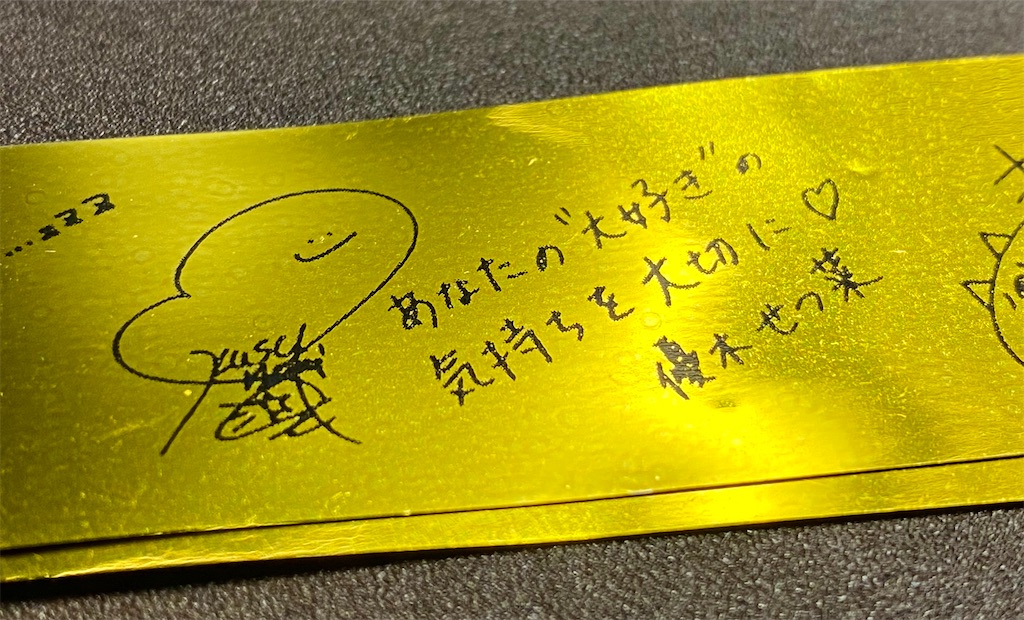 ...zzz
あなたの"大好き"の
気持ちを大切に♡
優木せつ菜
yuki